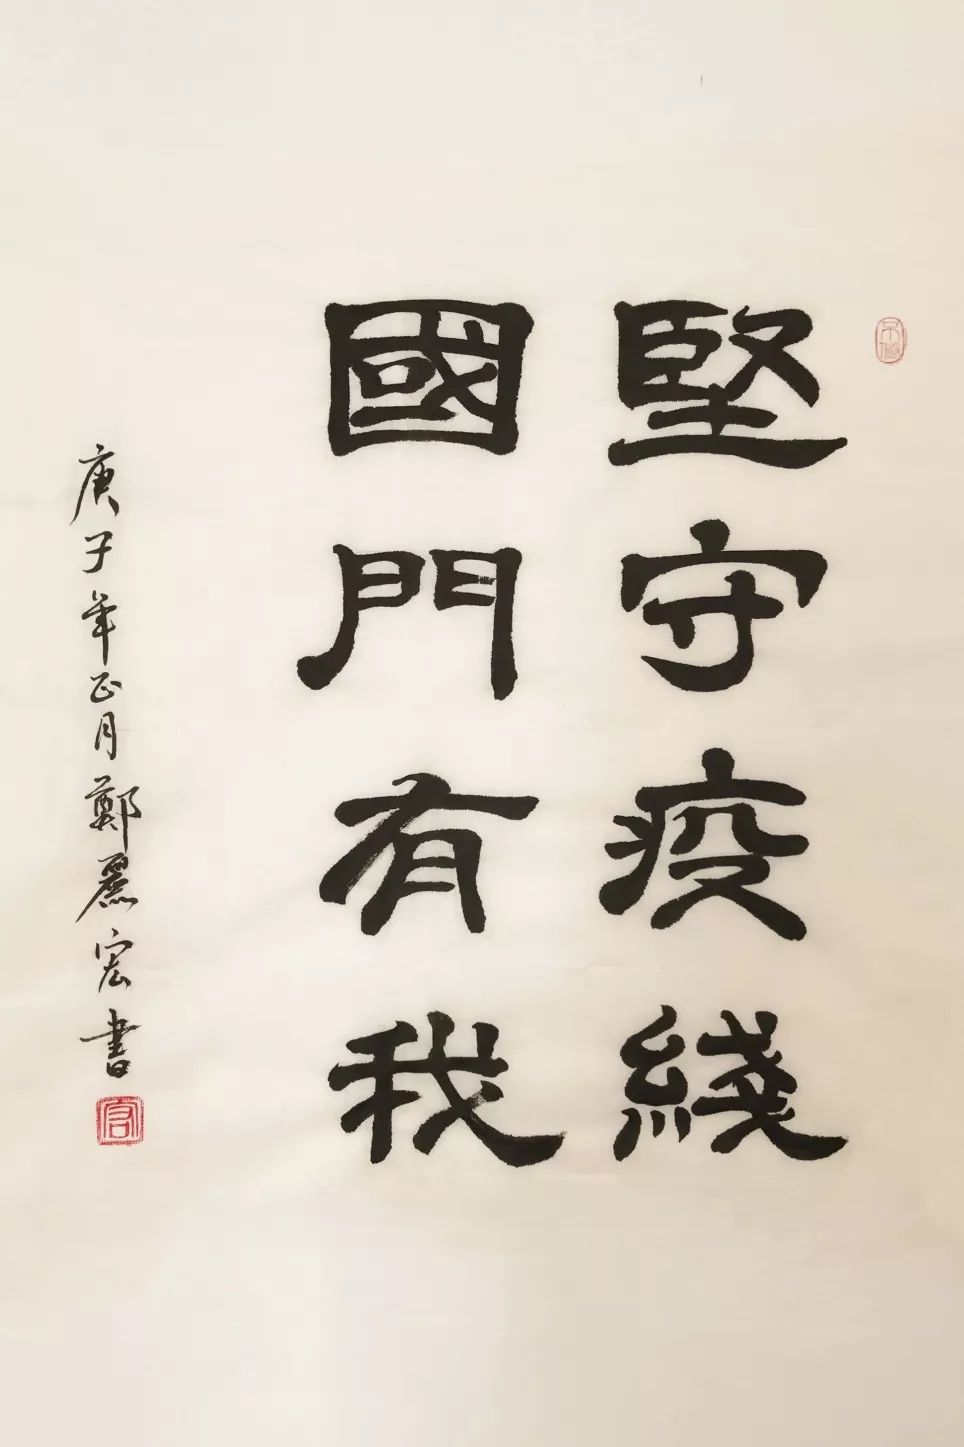 堅守疫綫
國門有我
庚子年正月鄭麗宏書